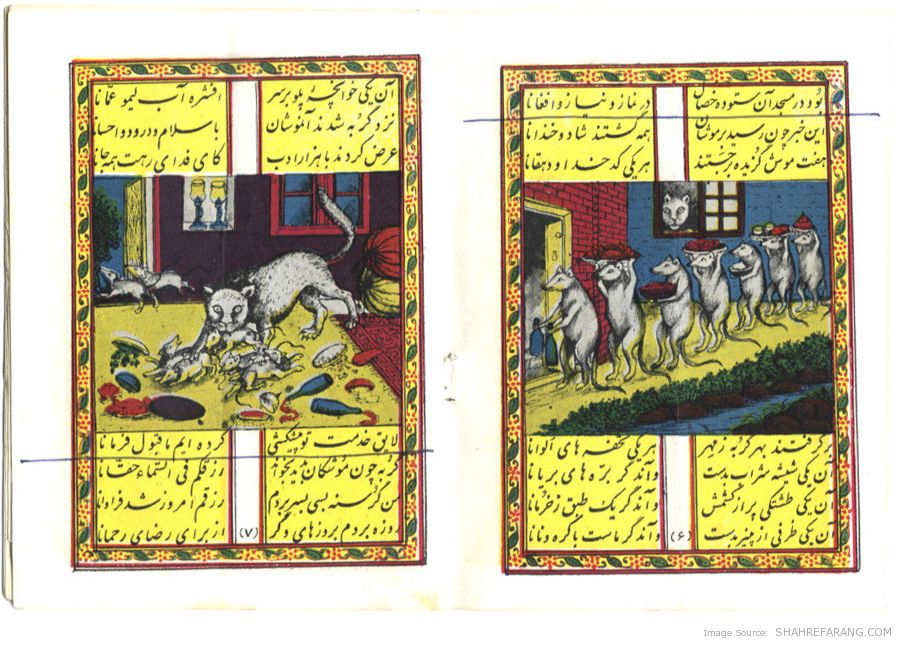 بود در مسجد آن ستوده خصال در نماز و نیاز و افغانا
این خبر چون رسید بر موشان همه گشتند شاد و خندانا
هفت موش گزیده برجستند هر یکی کدخدا و دهقانا
برگرفتند بهر گربه ز مهر هر یکی تحفه های الوانا
آن یکی شیشه شراب بدست وآندگر بره های بریانا
آن یکی طشتکی پر از کشمش وآندگر یک طبق ز خرمانا
آن یکی ظرفی از پنیر بدست وآندگر ماست با کره و نانا
(۶)
آن یکی خوانچهٔ پلو بر سر افشره آب لیمو عمّانا
نزد گربه شدند آن موشان با سلام و درود و احسانا
عرض کردند با هزار ادب کای فدای رهت همه جانا
لایق خدمت تو پیشکشی کرده ایم ما قبول فرمانا
گربه چون موشکان بدید بخواند رزقکم فی السّماء حقّانا
من گرسنه بسی بسر بردم رزقم امروز شد فراوانا
روزه بودم بروزهای دگر از برای رضای رحمانا
(۷)
Image Source: SHAHREFARANG.COM